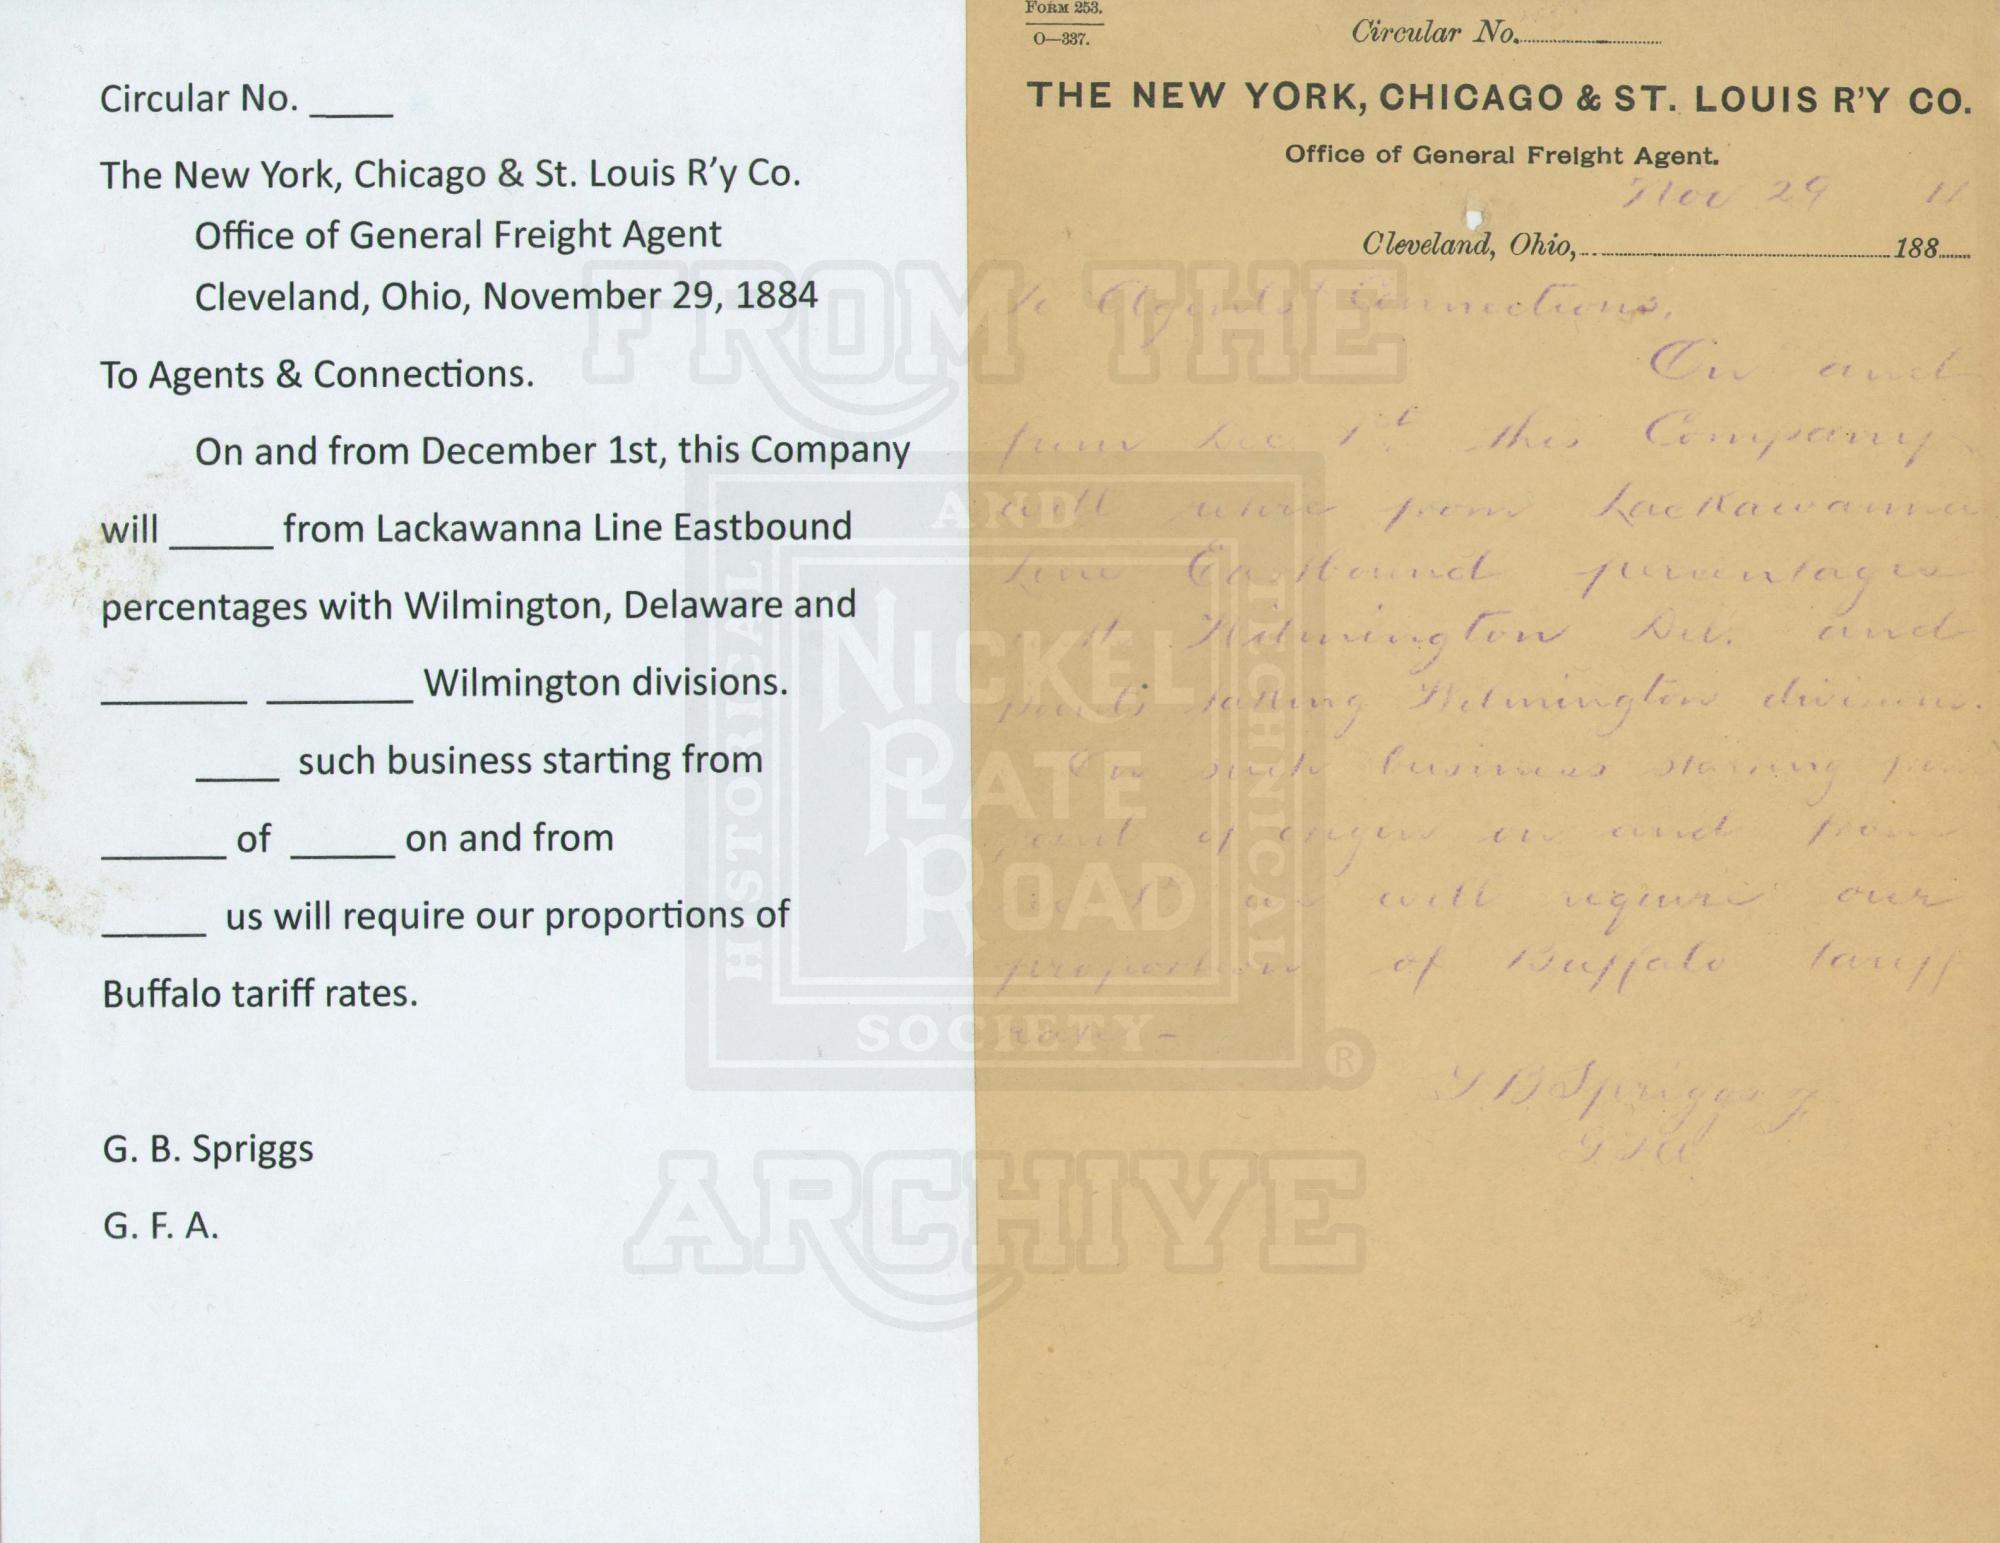 Circular No. ____
The New York, Chicago & St. Louis R’y Co.
Office of General Freight Agent
Cleveland, Ohio, November 29, 1884
To Agents & Connections.
On and from December 1st, this Company
will _____ from Lackawanna Line Eastbound
percentages with Wilmington, Delaware and
_______ _______ Wilmington divisions.
____ such business starting from
______ of _____ on and from
_____ us will require our proportions of
Buffalo tariff rates.
G. B. Spriggs
G. F. A.
FORM 253.
O—337.
Circular No.
THE NEW YORK, CHICAGO & ST. LOUIS R'Y CO.
Office of General Freight Agent.
Nov 29
Cleveland, Ohio, 188
To Agents & Connections.
On and
from Dec 1st this Company
will from Lackawanna
Line Eastbound percentages
with Wilmington Del. and
points taking Wilmington divisions.
On such business starting from
point of origin on and from
we will require our
proportion of Buffalo tariff
rates –
G B Spriggs
G F A
FROM THE
NICKEL
PLATE
ROAD
HISTORICAL
AND
TECHNICAL
SOCIETY
®
ARCHIVE